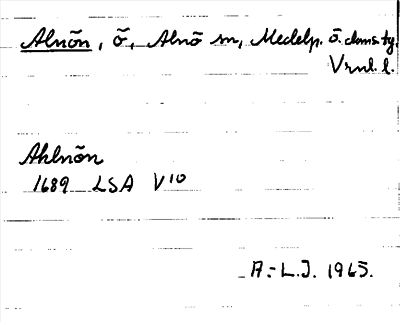 Alnön, ö, Alnö sn, Medelp. ö. doms. tg.
Vrnl. l.
Ahlnön
1689 LSA V10
A.-L.J. 1965.